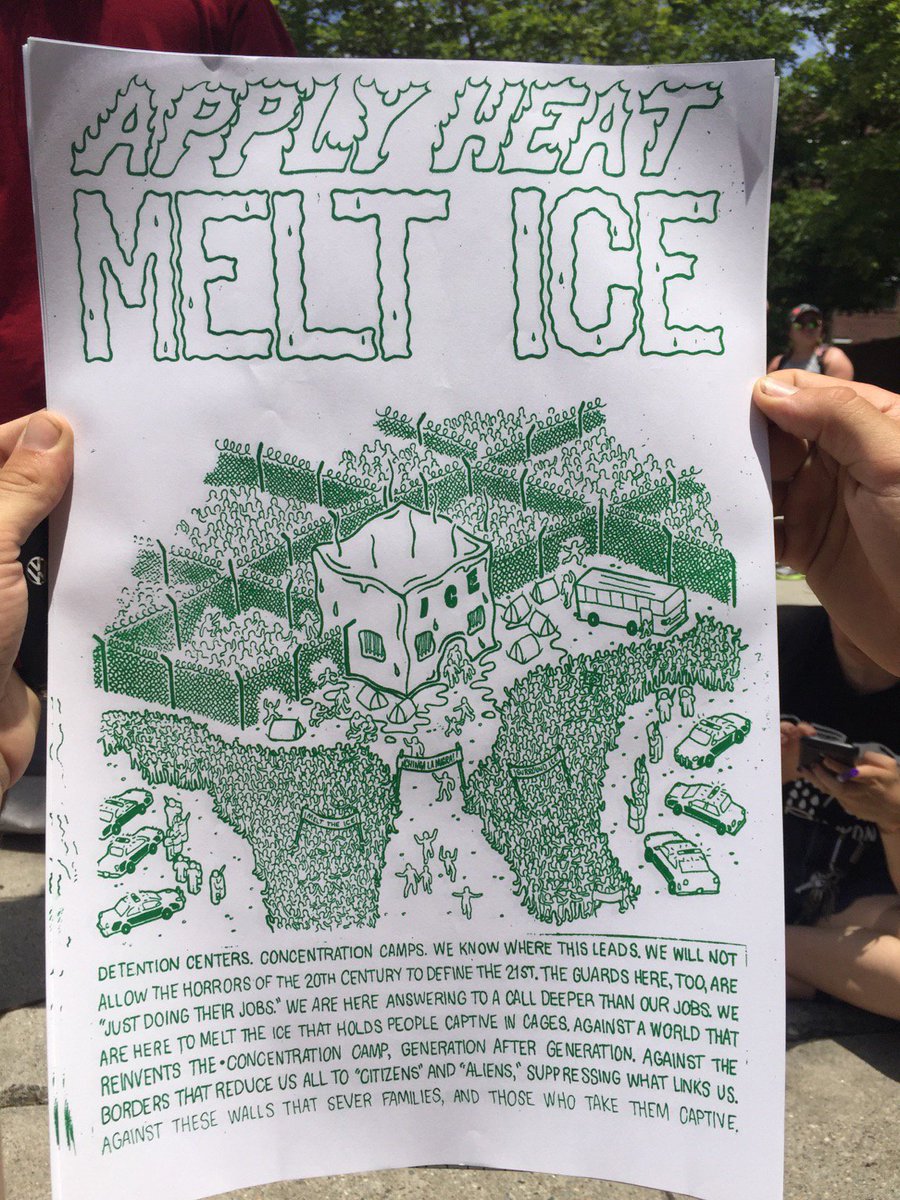 APPLY HEAT
MELT ICE
ICE
¡CHINGA LA MIGRA!
SURROUND ICE
MELT THE ICE
DETENTION CENTERS. CONCENTRATION CAMPS. WE KNOW WHERE THIS LEADS. WE WILL NOT
ALLOW THE HORRORS OF THE 20TH CENTURY TO DEFINE THE 21ST. THE GUARDS HERE, TOO, ARE
"JUST DOING THEIR JOBS." WE ARE HERE ANSWERING TO A CALL DEEPER THAN OUR JOBS. WE
ARE HERE TO MELT THE ICE THAT HOLDS PEOPLE CAPTIVE IN CAGES. AGAINST A WORLD THAT
REINVENTS THE CONCENTRATION CAMP, GENERATION AFTER GENERATION. AGAINST THE
BORDERS THAT REDUCE US ALL TO "CITIZENS" AND "ALIENS," SUPPRESSING WHAT LINKS US.
AGAINST THESE WALLS THAT SEVER FAMILIES, AND THOSE WHO TAKE THEM CAPTIVE.